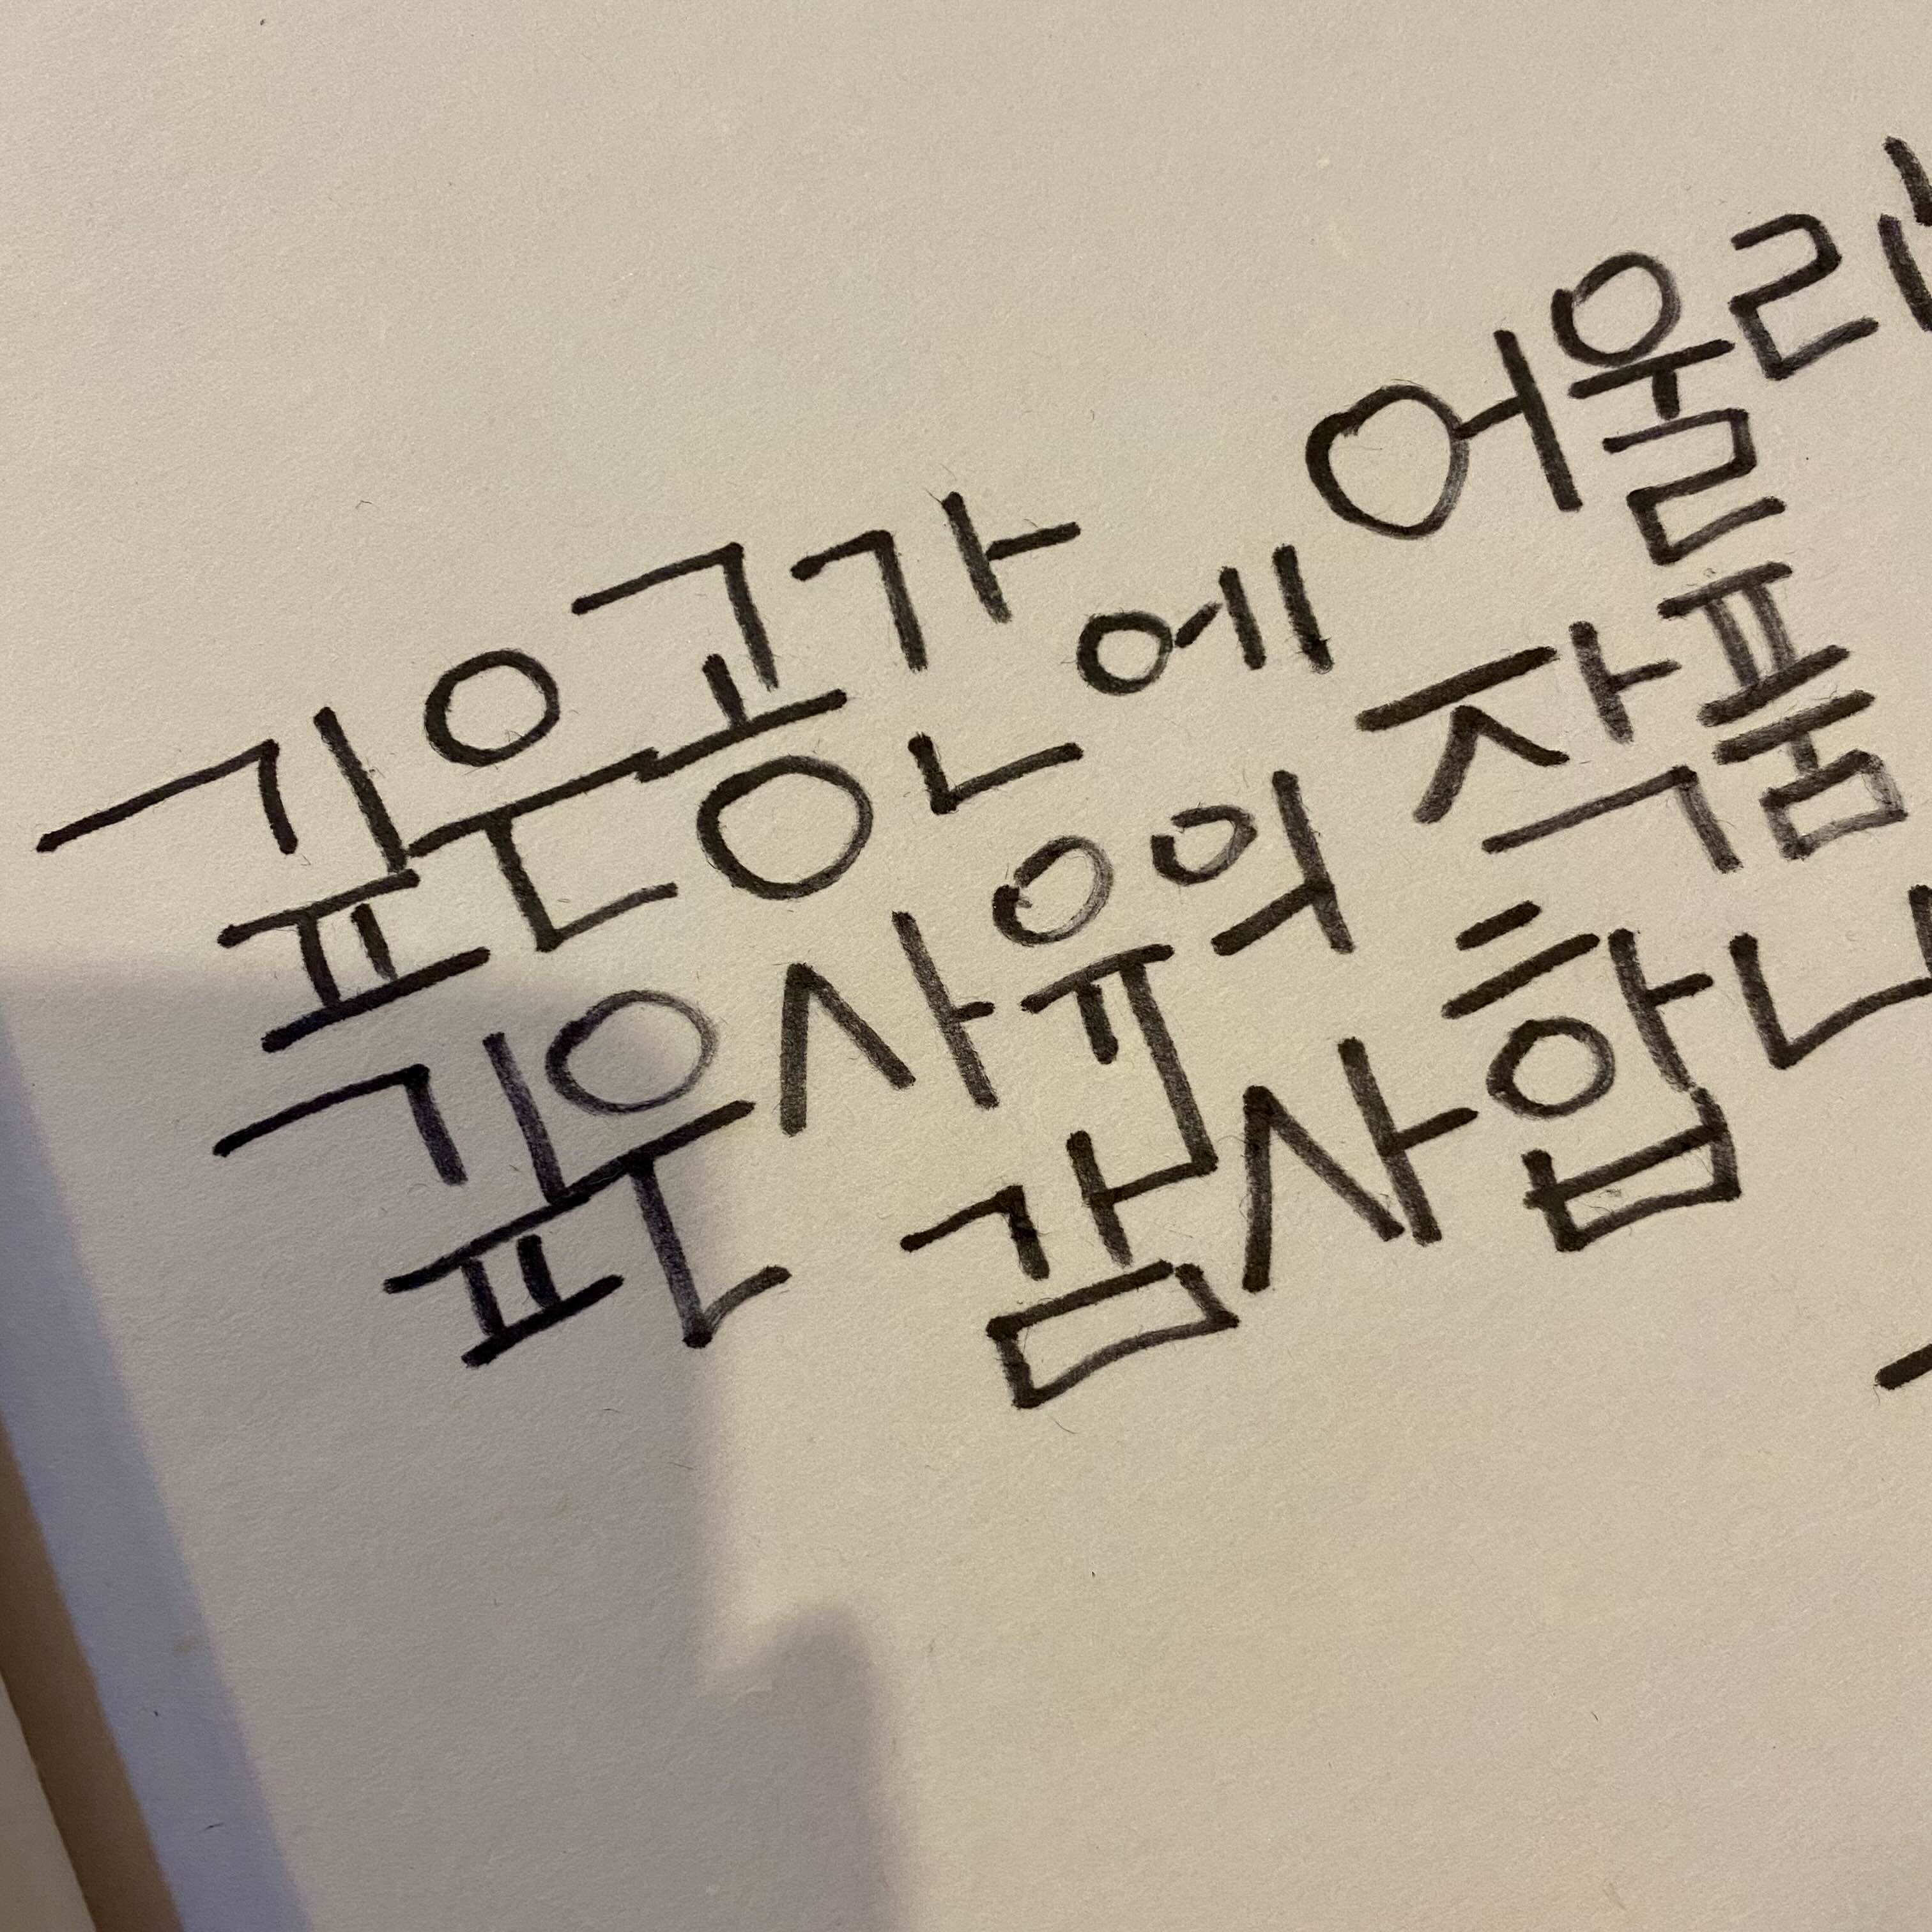 깊은 공간에 어울리
깊은 사유의 작품
감사합니